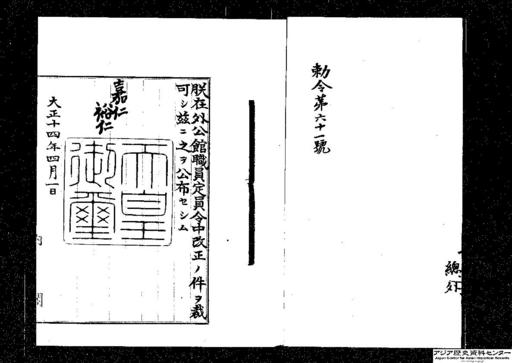 勅令第六十一號
總外
朕在外公館職員定員令中改正ノ件ヲ裁
可シ茲ニ之ヲ公布セシム
嘉仁
裕仁
天皇御璽
大正十四年四月一日
内閣
アジア歴史資料センター
Japan Center for Asian Historical Records